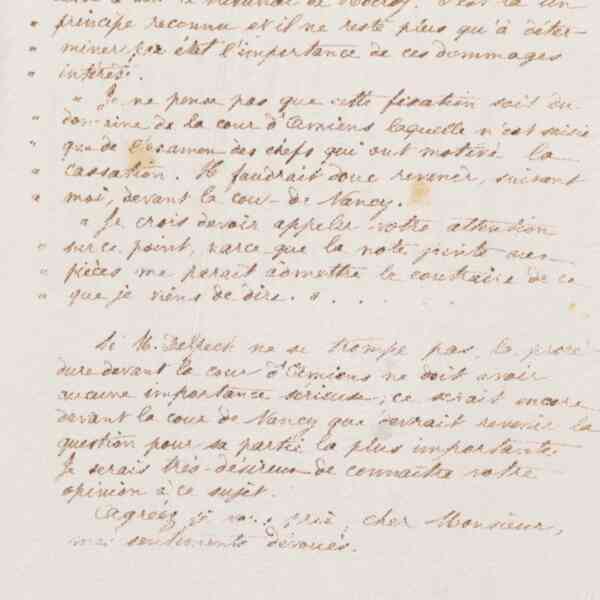 " principe reconnu et il ne reste plus qu'à déter-
" miner par état l'importance de ces dommages
" intérêts.
" " Je ne pense pas que cette fixation soit du
" domaine de la cour d'Amiens laquelle n'est saisie
" que de l'examen des chefs qui ont motivé la
" cassation. Il faudrait donc revenir, suivant
" moi, devant la cour de Nancy.
" Je crois devoir appeler votre attention
" sur ce point, parce que la note jointe aux
" pièces me paraît admettre le contraire de ce
" que je viens de dire. " . . .
Si M. Delpech ne se trompe pas, la procé-
dure devant la cour d'Amiens ne doit avoir
aucune importance sérieuse; ce serait encore
devant la cour de Nancy que devrait revenir la
question pour sa partie la plus importante.
Je serais très-désireux de connaître votre
opinion à ce sujet.
Agréez, je vous prie, cher Monsieur,
mes sentiments dévoués.